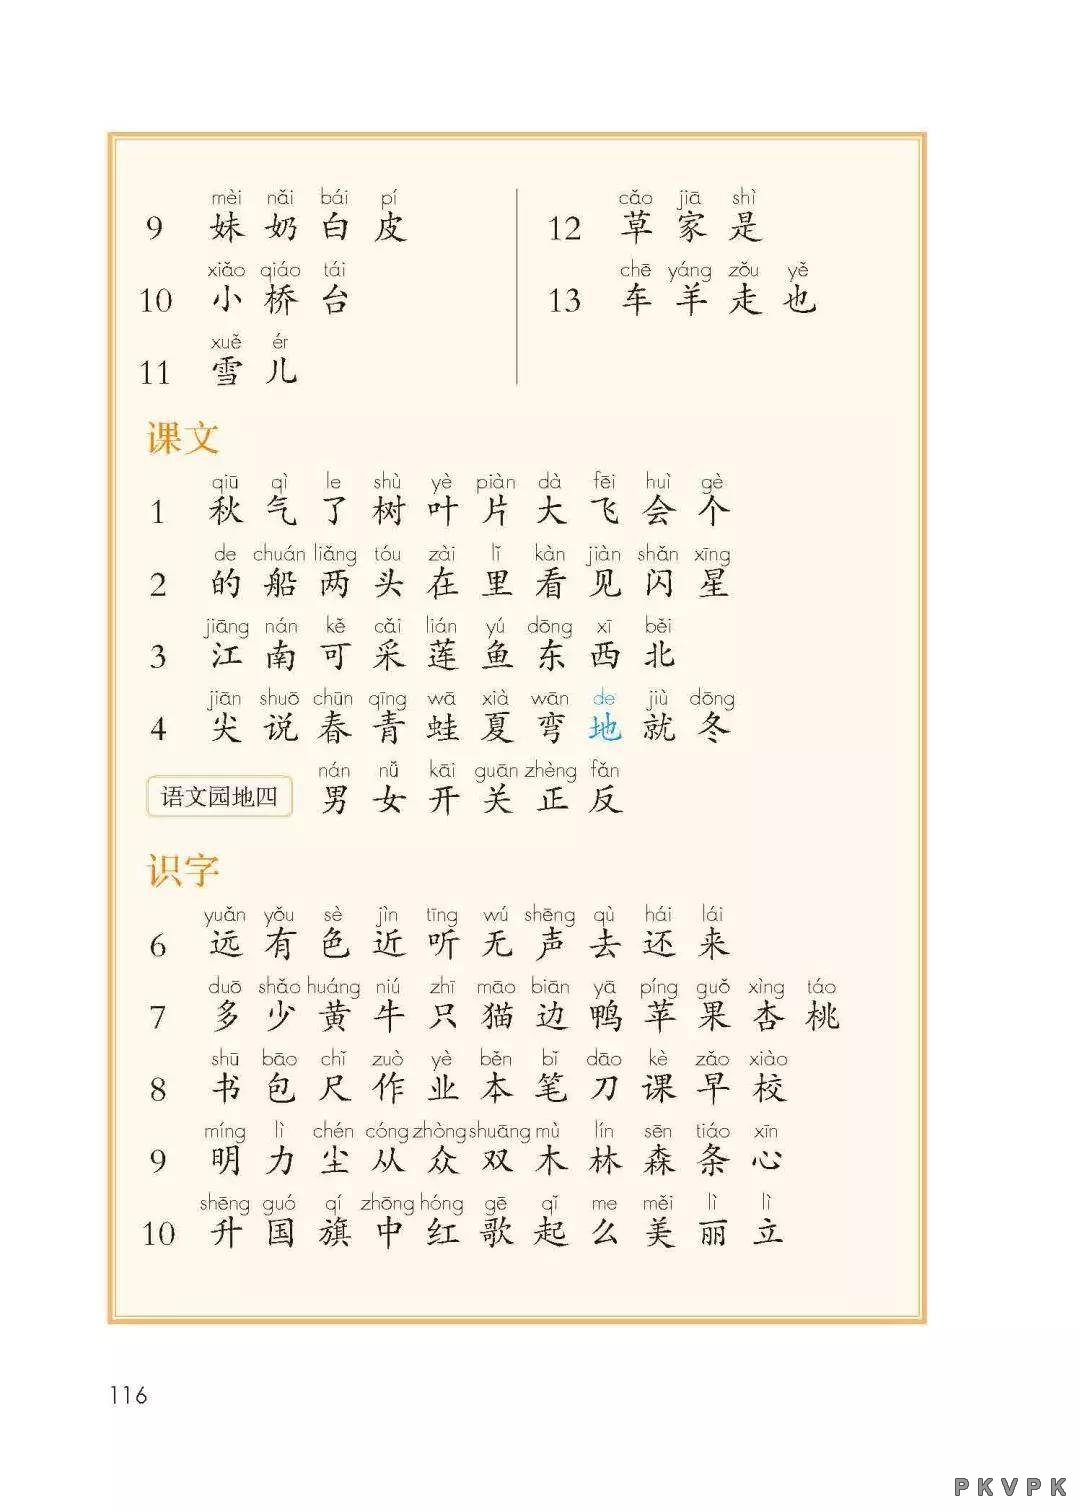 mèi nǎi bái pí
9 妹 奶 白 皮
xiǎo qiáo tái
10 小 桥 台
xuě ér
11 雪 儿
cǎo jiā shì
12 草 家 是
chē yáng zǒu yě
13 车 羊 走 也
课文
qiū qì le shù yè piàn dà fēi huì gè
1 秋 气 了 树 叶 片 大 飞 会 个
de chuán liǎng tóu zài lǐ kàn jiàn shǎn xīng
2 的 船 两 头 在 里 看 见 闪 星
jiāng nán kě cǎi lián yú dōng xī běi
3 江 南 可 采 莲 鱼 东 西 北
jiān shuō chūn qīng wā xià wān de jiù dōng
4 尖 说 春 青 蛙 夏 弯 地 就 冬
nán nǚ kāi guān zhèng fǎn
语文园地四 男 女 开 关 正 反
识字
yuǎn yǒu sè jìn tīng wú shēng qù hái lái
6 远 有 色 近 听 无 声 去 还 来
duō shǎo huáng niú zhī māo biān yā píng guǒ xìng táo
7 多 少 黄 牛 只 猫 边 鸭 苹 果 杏 桃
shū bāo chǐ zuò yè běn bǐ dāo kè zǎo xiào
8 书 包 尺 作 业 本 笔 刀 课 早 校
míng lì chén cóng zhòng shuāng mù lín sēn tiáo xīn
9 明 力 尘 从 众 双 木 林 森 条 心
shēng guó qí zhōng hóng gē qǐ me měi lì lì
10 升 国 旗 中 红 歌 起 么 美 丽 立
116
PKVPK